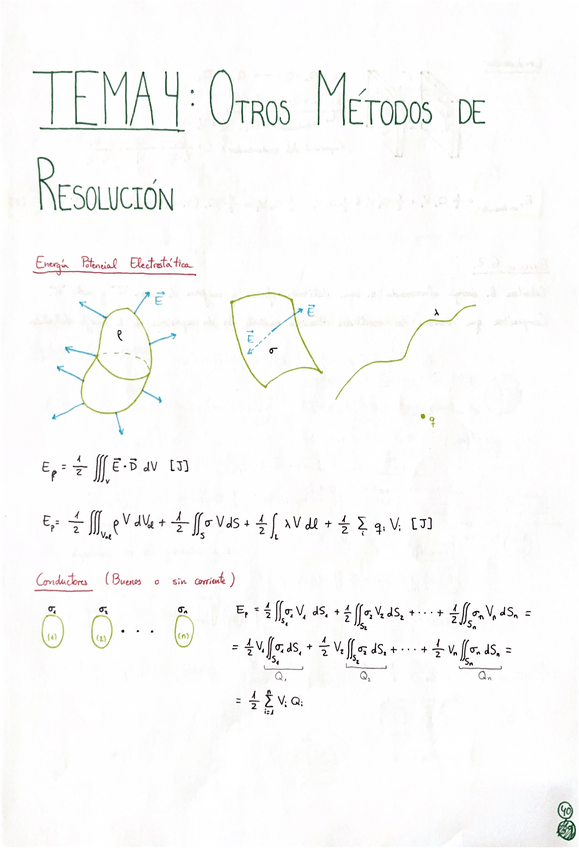 TEMA 4: OTROS MÉTODOS DE
RESOLUCIÓN
Energía Potencial Electrostática
ρ
E⃗
E⃗
E⃗
σ
λ
q
Eρ = 1/2 ∭_V E⃗·D⃗ dV [J]
Eρ = 1/2 ∭_Vol ρ V dVol + 1/2 ∬_S σ V dS + 1/2 ∫_L λ V dl + 1/2 Σ_i q_i V_i [J]
Conductores (Buenos o sin corriente)
σ₁ σ₂ σₙ
(1) (2) ... (n)
Eρ = 1/2 ∬_S₁ σ₁ V₁ dS₁ + 1/2 ∬_S₂ σ₂ V₂ dS₂ + ··· + 1/2 ∬_Sₙ σₙ Vₙ dSₙ =
= 1/2 V₁ ∬_S₁ σ₁ dS₁ + 1/2 V₂ ∬_S₂ σ₂ dS₂ + ··· + 1/2 Vₙ ∬_Sₙ σₙ dSₙ =
Q₁ Q₂ Qₙ
= 1/2 Σ_{i=1}^{n} V_i Q_i
40